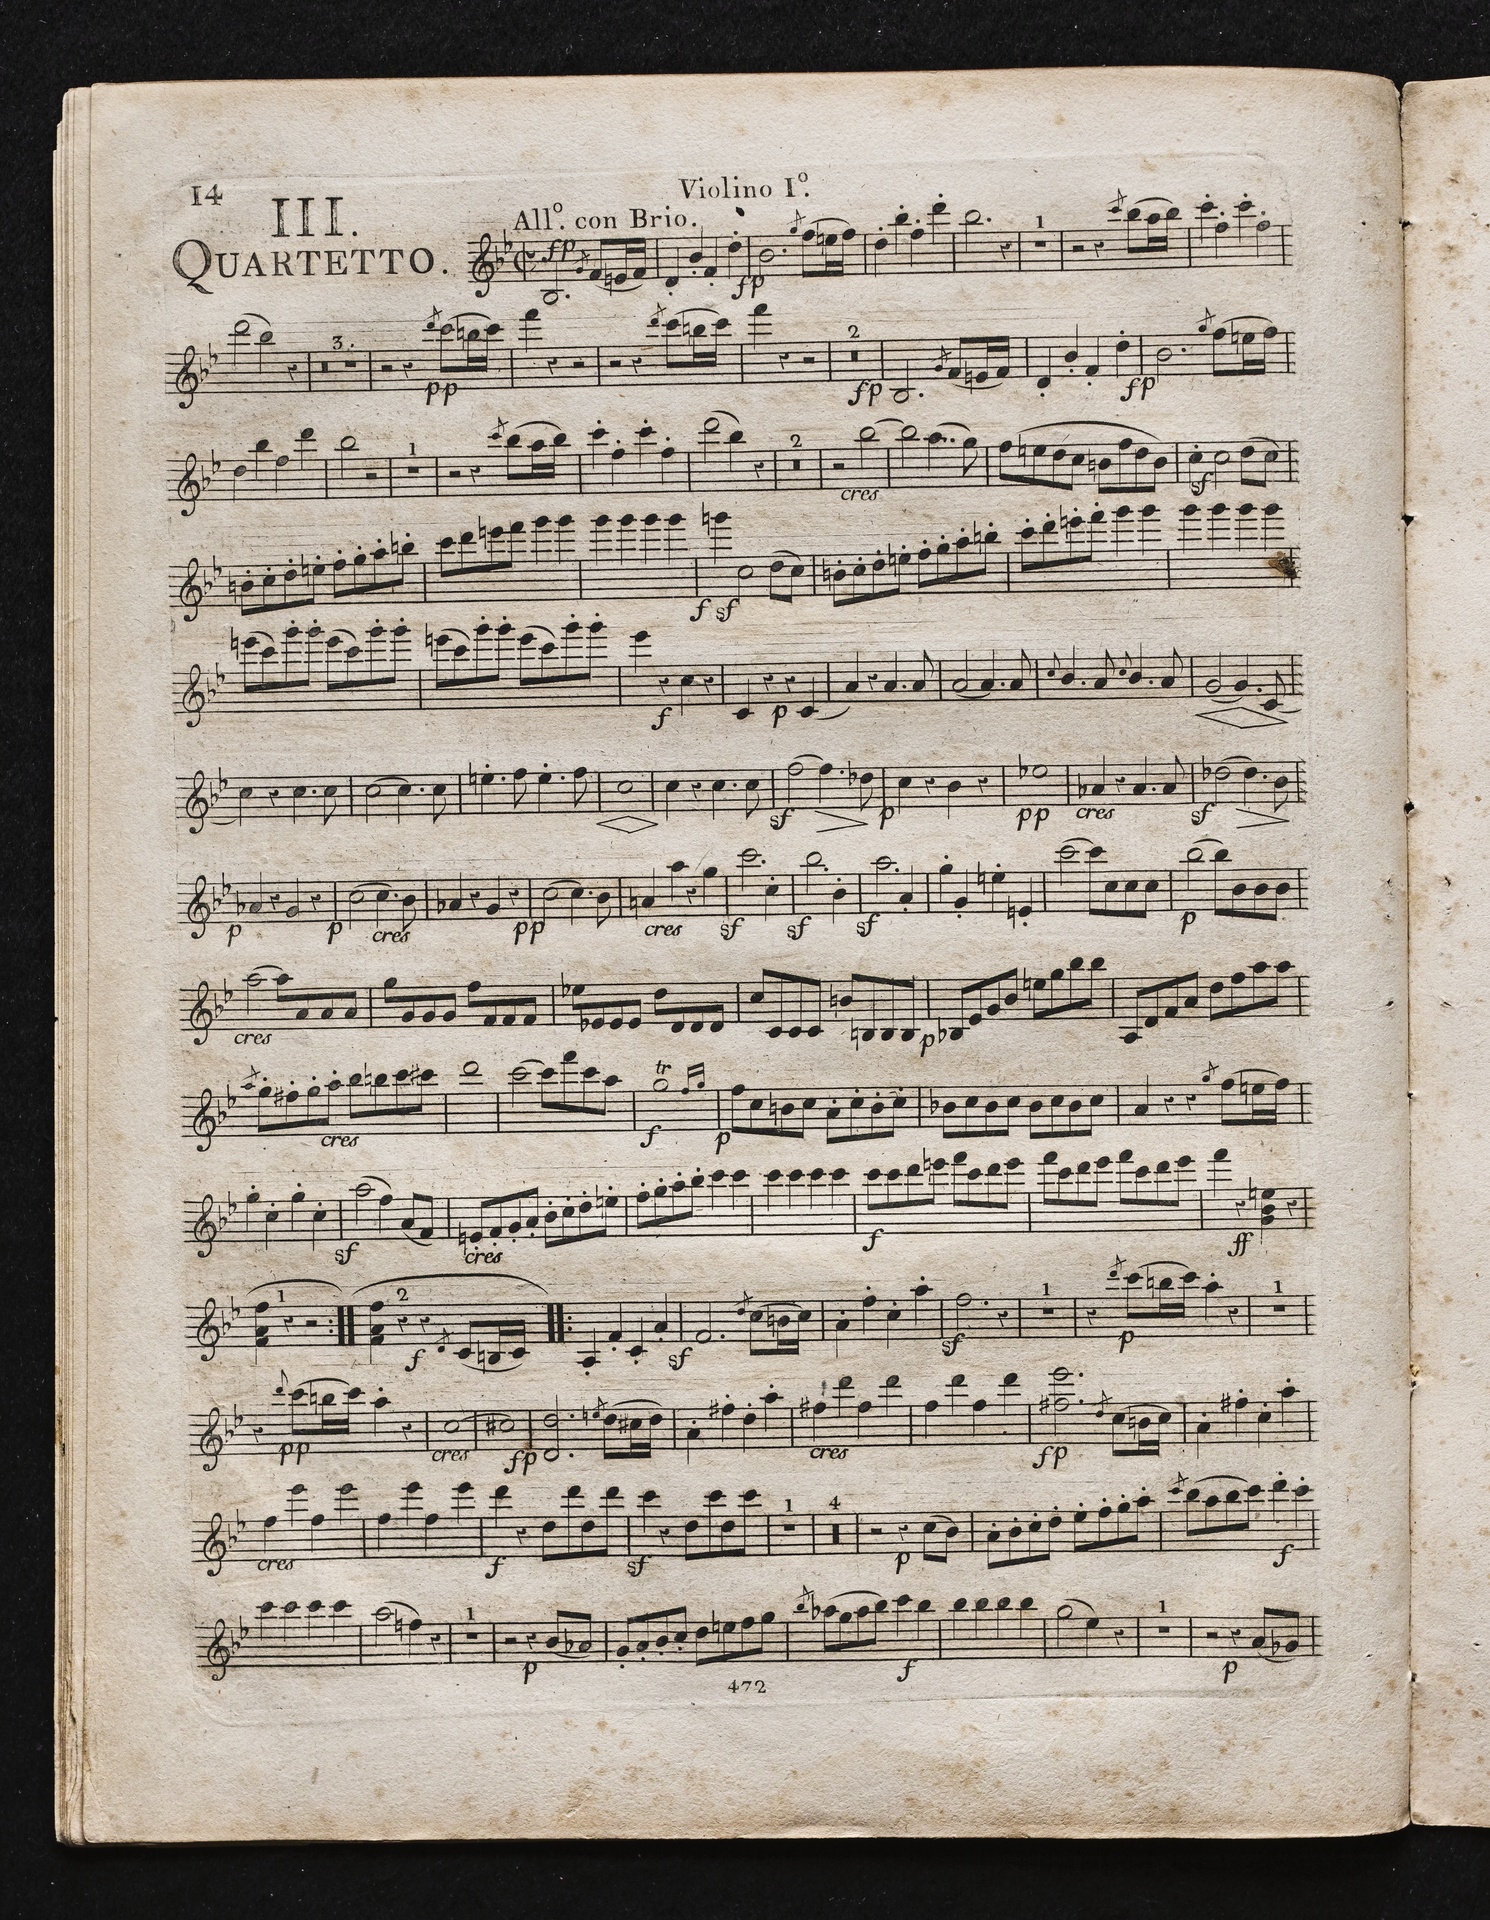 14
Violino I.º
III.
All.º con Brio.
QUARTETTO.
fp fp 1
3. pp 2 fp fp
1 2 cres sf
f sf
f p
sf p pp cres sf
p p cres pp cres sf sf sf p
cres p
cres tr f p
sf cres f ff
1 2 f sf sf 1 p 1
pp cres fp cres fp
cres f sf 1 4 p f
1 p f 1 p
472